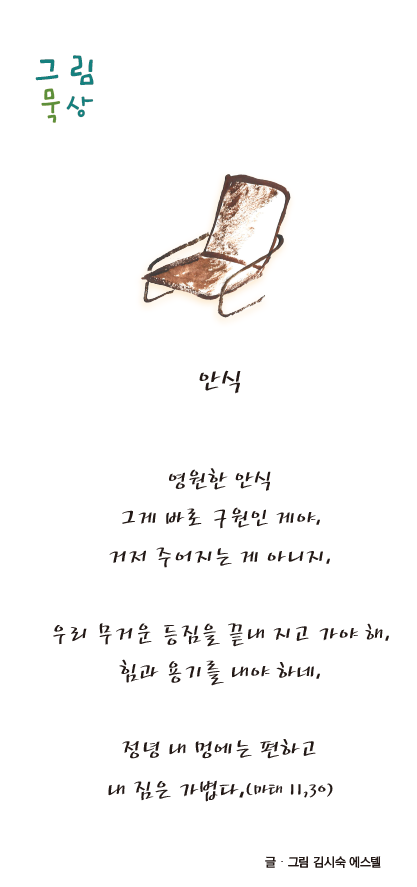 그림
묵상
안식
영원한 안식
그게 바로 구원인 게야,
거저 주어지는 게 아니지,
우리 무거운 등짐을 끝내 지고 가야 해,
힘과 용기를 내야 하네,
정녕 내 멍에는 편하고
내 짐은 가볍다,(마태 11,30)
글 · 그림 김시숙 에스텔